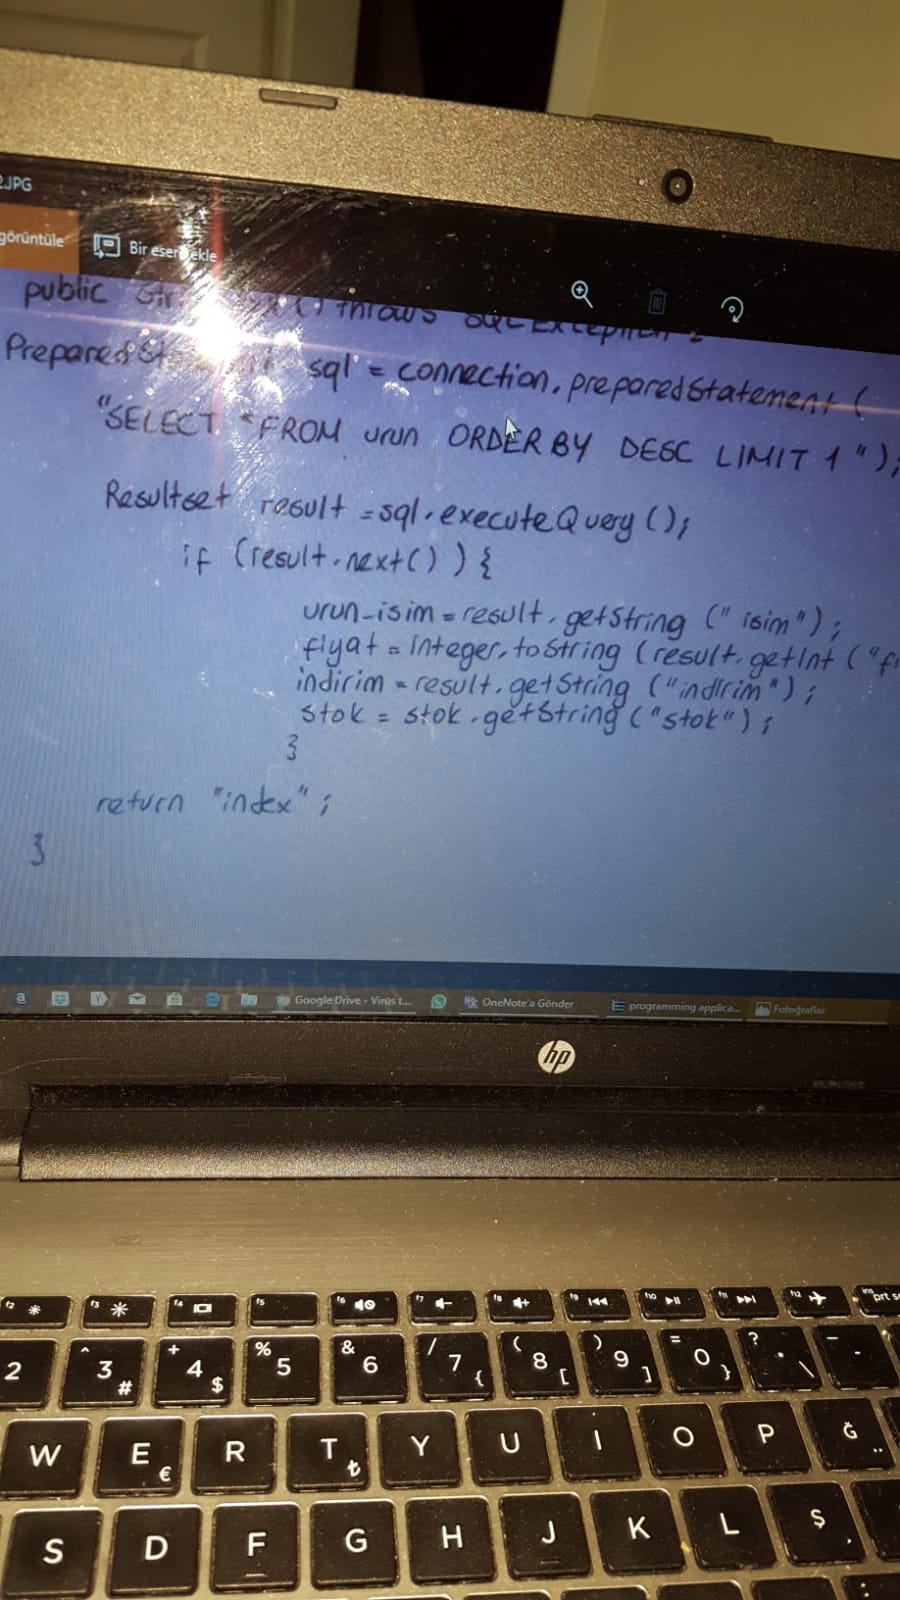 2.JPG
görüntüle
Bir eser ekle
public throws SQLException {
sql = connection.preparedStatement (
"SELECT * FROM urun ORDER BY DESC LIMIT 1");
Resultset result = sql.executeQuery();
if (result.next()) {
urun_isim = result.getString ("isim");
fiyat = Integer.toString (result.getInt ("fi
indirim = result.getString ("indirim");
stok = stok.getString ("stok");
}
return "index";
}
a Y Google Drive - Virüs t... OneNote'a Gönder programming applica... Fotoğraflar
hp
f2 f3 f4 f5 f6 f7 f8 f9 f10 f11 f12 ins prt s
2 ^ 3 # + 4 $ % 5 & 6 / 7 { ( 8 [ ) 9 ] = 0 } ? * \ _ -
W E € R T ₺ Y U I O P Ğ ¨
S D F G H J K L Ş ,
: